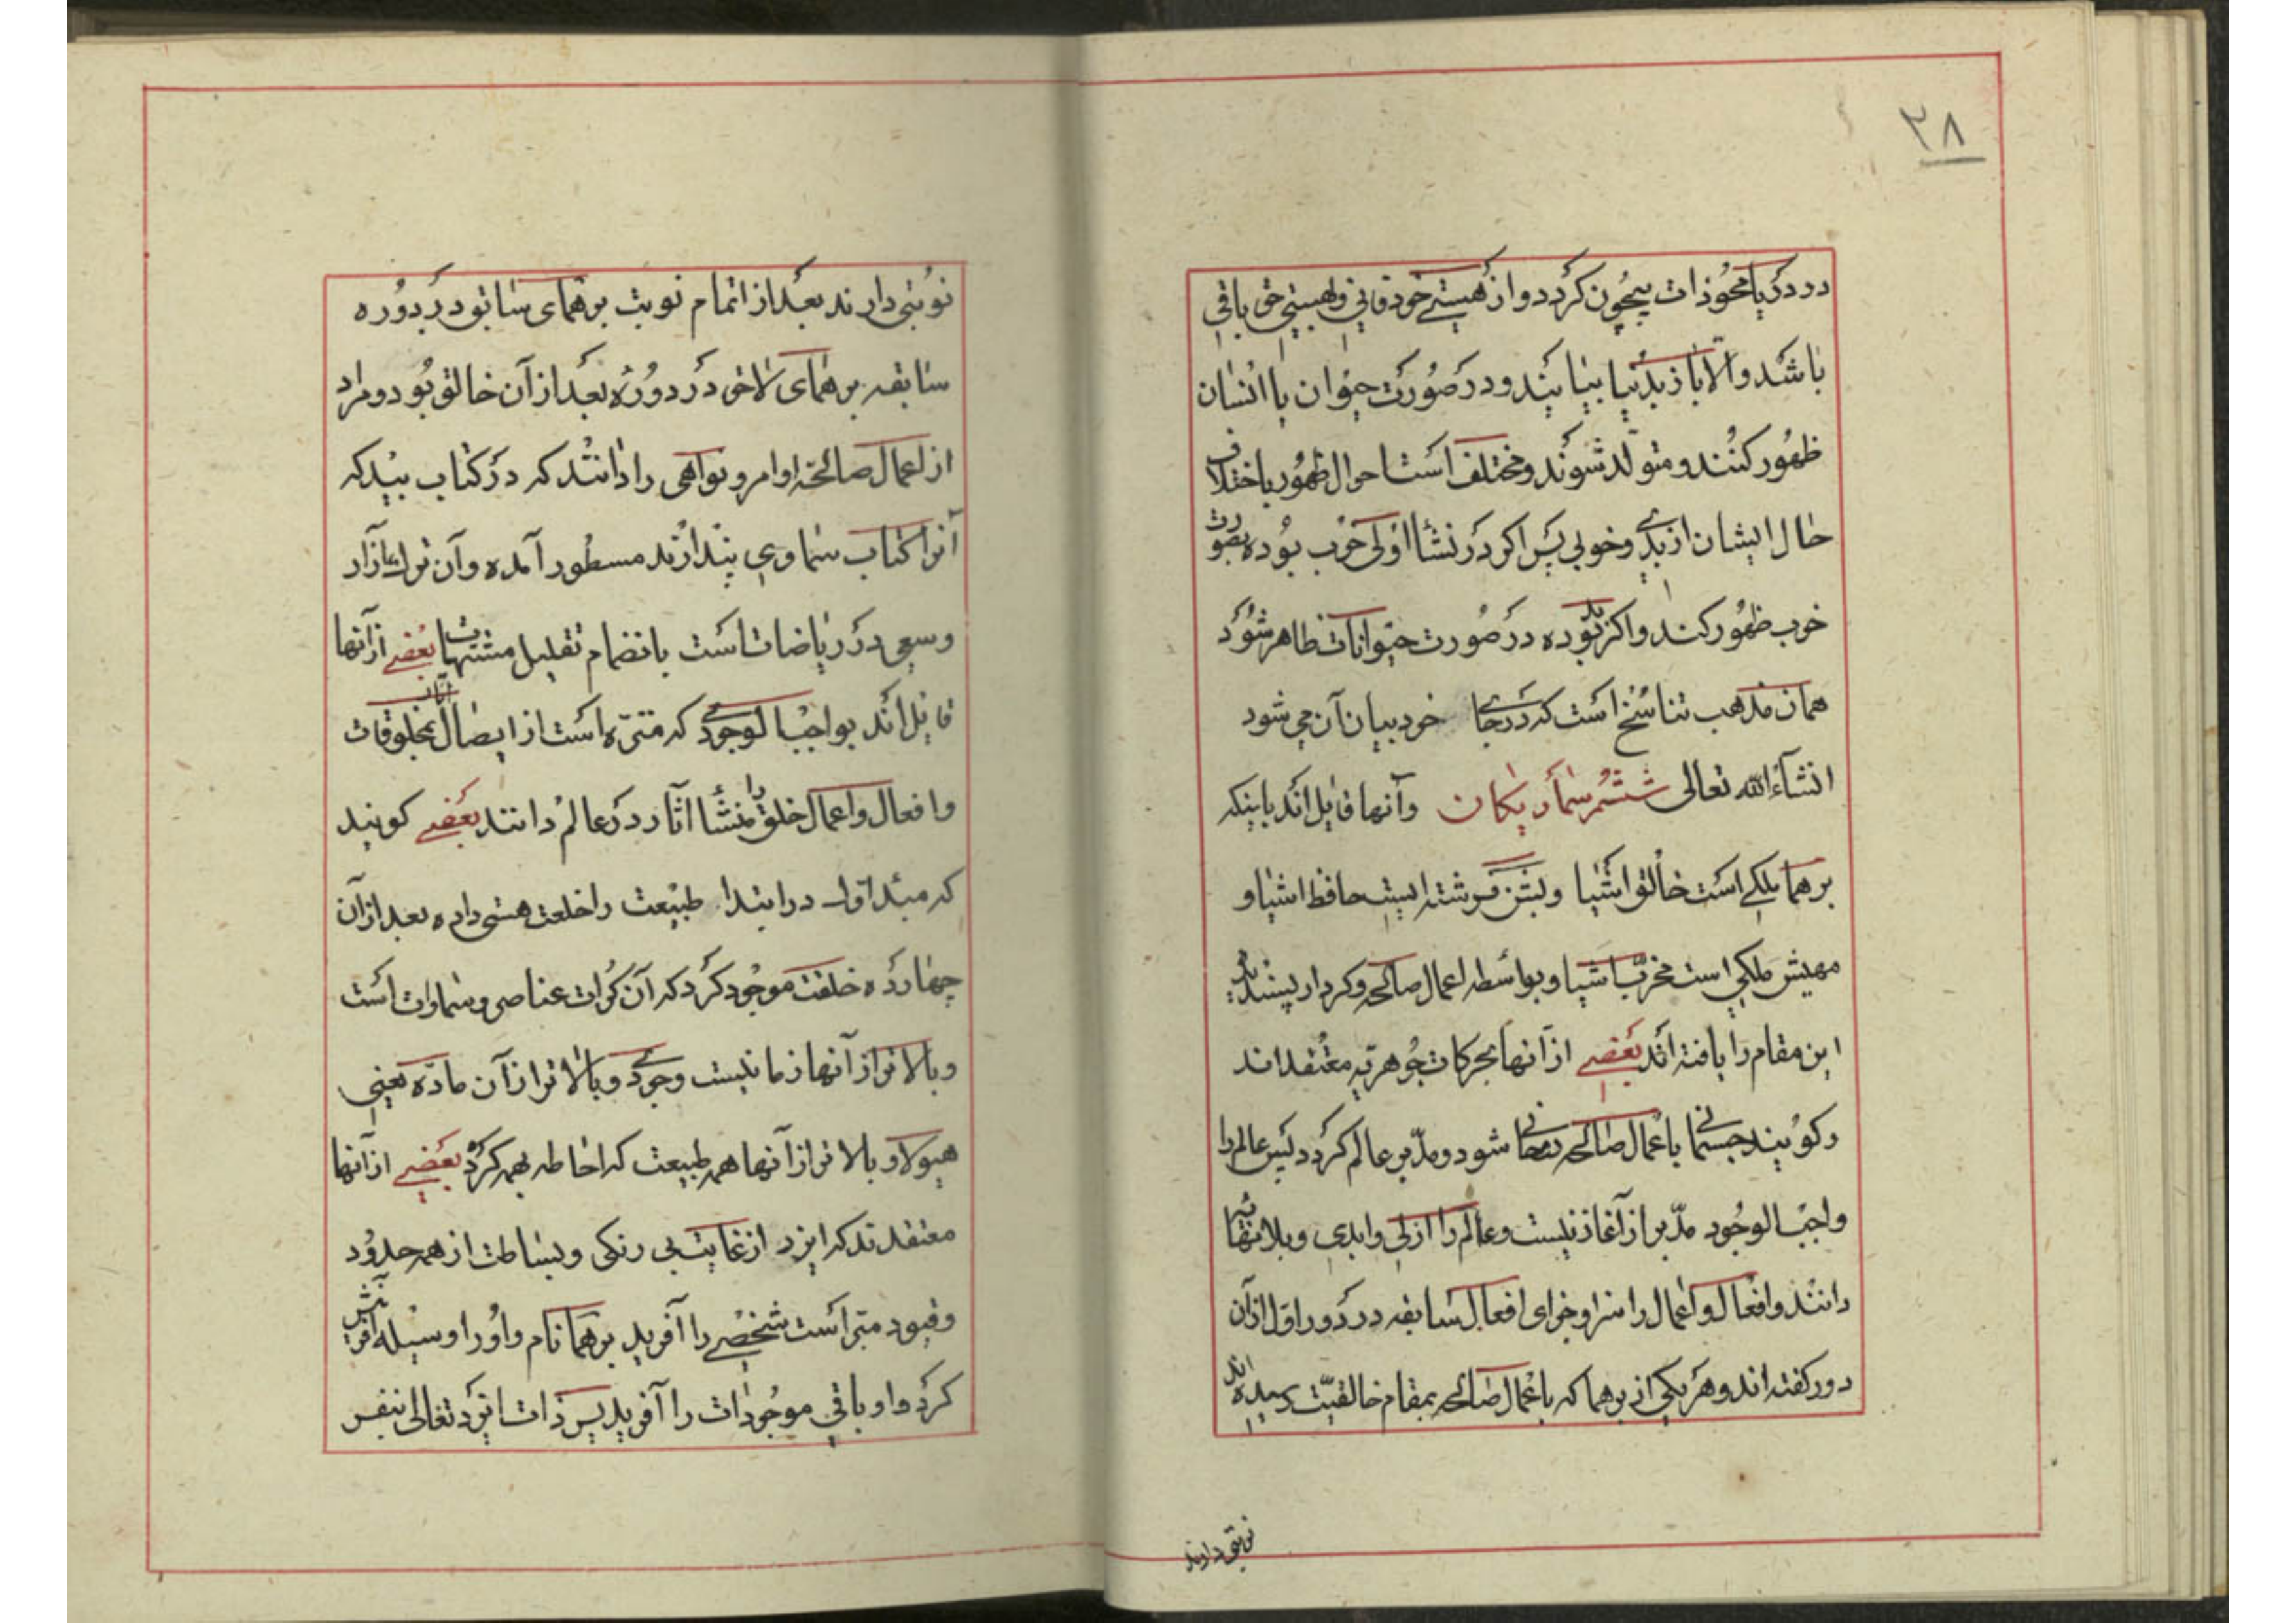 ۲۸
در دریا محو ذات بیچون کردد و از هستی خود فانی و بهستی حق باقی
باشد و الا باز بدنیا بیایند و در صورت حیوان یا انسان
ظهور کنند و متولد شوند و مختلف است احوال ظهور باختلاف
حال ایشان از بدی و خوبی پس اکر در نشأ اولی خوب بوده بصورت
خوب ظهور کند و اکر بد بوده در صورت حیوانات ظاهر شود
همان مذهب تناسخ است که در جای خود بیان آن می شود
انشآءالله تعالی ششم سماریکان وآنها قایل اند باینکه
برهما ملکی است خالق اشیا وبشن فرشته ایست حافظ اشیا و
مهیش ملکی است مخرب اشیا و بواسطه اعمال صالحه و کردار پسندیده
این مقام را یافته اند بعضی ازآنها بحرکات جوهریه معتقد اند
و کویند جسمانی باعمال صالحه روحانی شود و مدبر عالم کردد پس عالم را
واجب الوجود مدبر از آغاز نیست و عالم را ازلی و ابدی و بلا نهایه
دانند و افعال و اعمال را سزا و جزای افعال سابقه در دور اول از آن
دور کفته اند و هر یکی از برهما که باعمال صالحه بمقام خالقیت رسیده اند
نوبتی دارند
نوبتی دارند بعد از اتمام نوبت برهمای سابق در دوره
سابقه برهمای لاحق در دوره بعد از آن خالق بود و مراد
از اعمال صالحه اوامر و نواهی را دانند که در کتاب بید که
آنرا کتاب سماوی پندارند مسطور آمده و آن ترک آزار
وسعی در ریاضات است بانضمام تقلیل مشتهیات بعضی ازآنها
قایل اند بواجب الوجودی که منزه است از ایصال آثار بمخلوقات
وافعال و اعمال خلق را منشأ آثار در عالم دانند بعضی کویند
که مبداء اول در ابتدا طبیعت را خلعت هستی داده بعد ازآن
چهارده خلقت موجود کرد که آن کرات عناصر و سماوات است
وبالاتر از آنها زمانیست وجودی و بالاتر ازآن ماده یعنی
هیولا و بالاتر از آنها همه طبیعت که احاطه بهمه کرده بعضی ازآنها
معتقدند که ایزد از غایت بی رنکی و بساطت از همه حدود
وقیود مبراست شخصی را آفرید برهما نام و او را وسیله آفرینش
کرد و او باقی موجودات را آفرید پس ذات ایزد تعالی بنفس